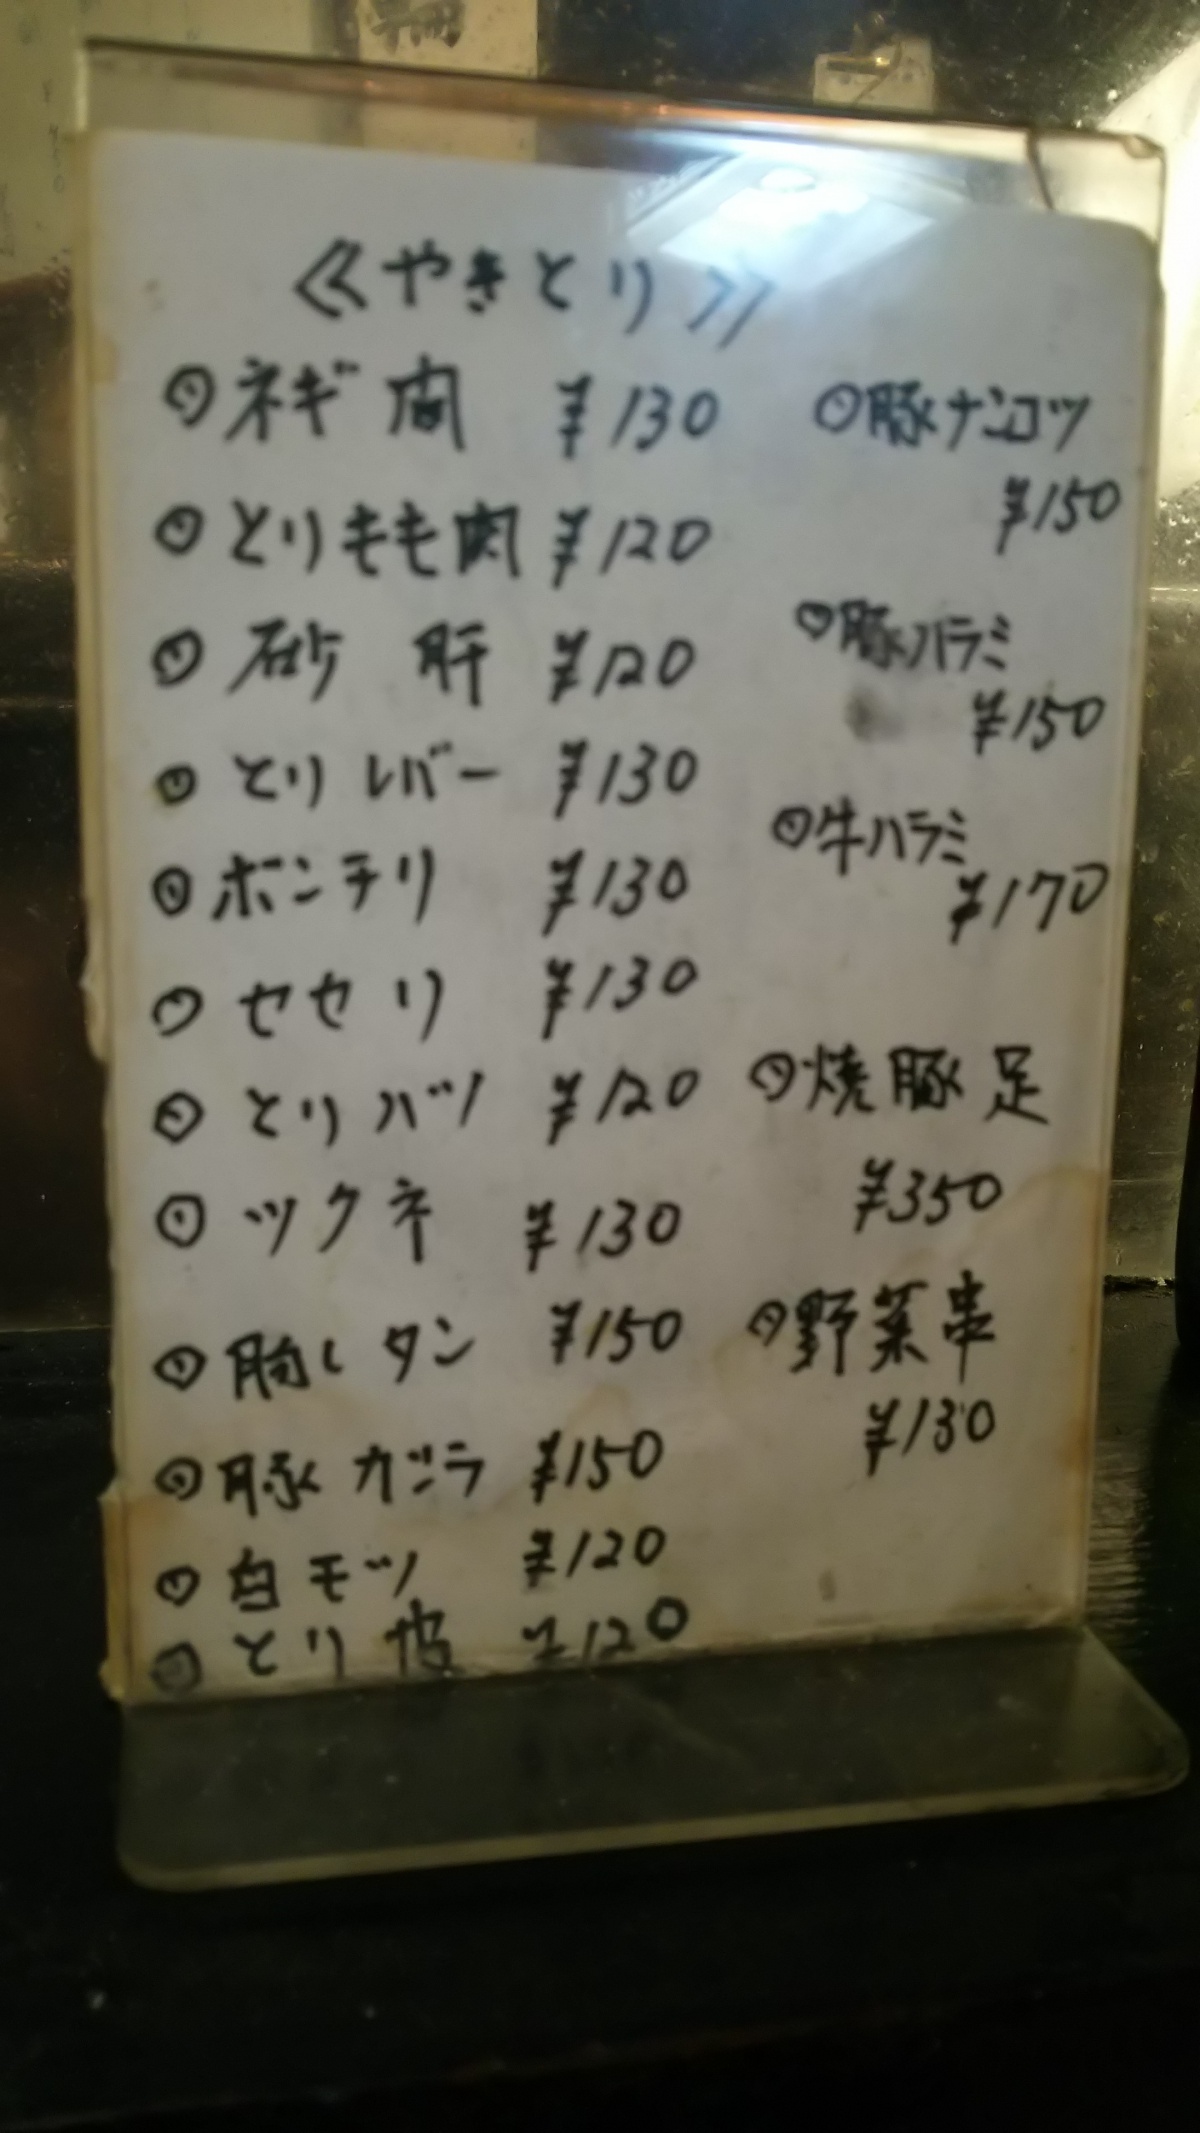 ≪やきとり≫
◎ネギ肉 ¥130
◎とりもも肉 ¥120
◎砂肝 ¥120
◎とりレバー ¥130
◎ボンチリ ¥130
◎セセリ ¥130
◎とりハツ ¥120
◎ツクネ ¥130
◎タン ¥150
◎豚カシラ ¥150
◎白モツ ¥120
◎とり皮 ¥120
◎豚ナンコツ
¥150
◎豚ハラミ
¥150
◎牛ハラミ
¥170
◎焼豚足
¥350
◎野菜串
¥130